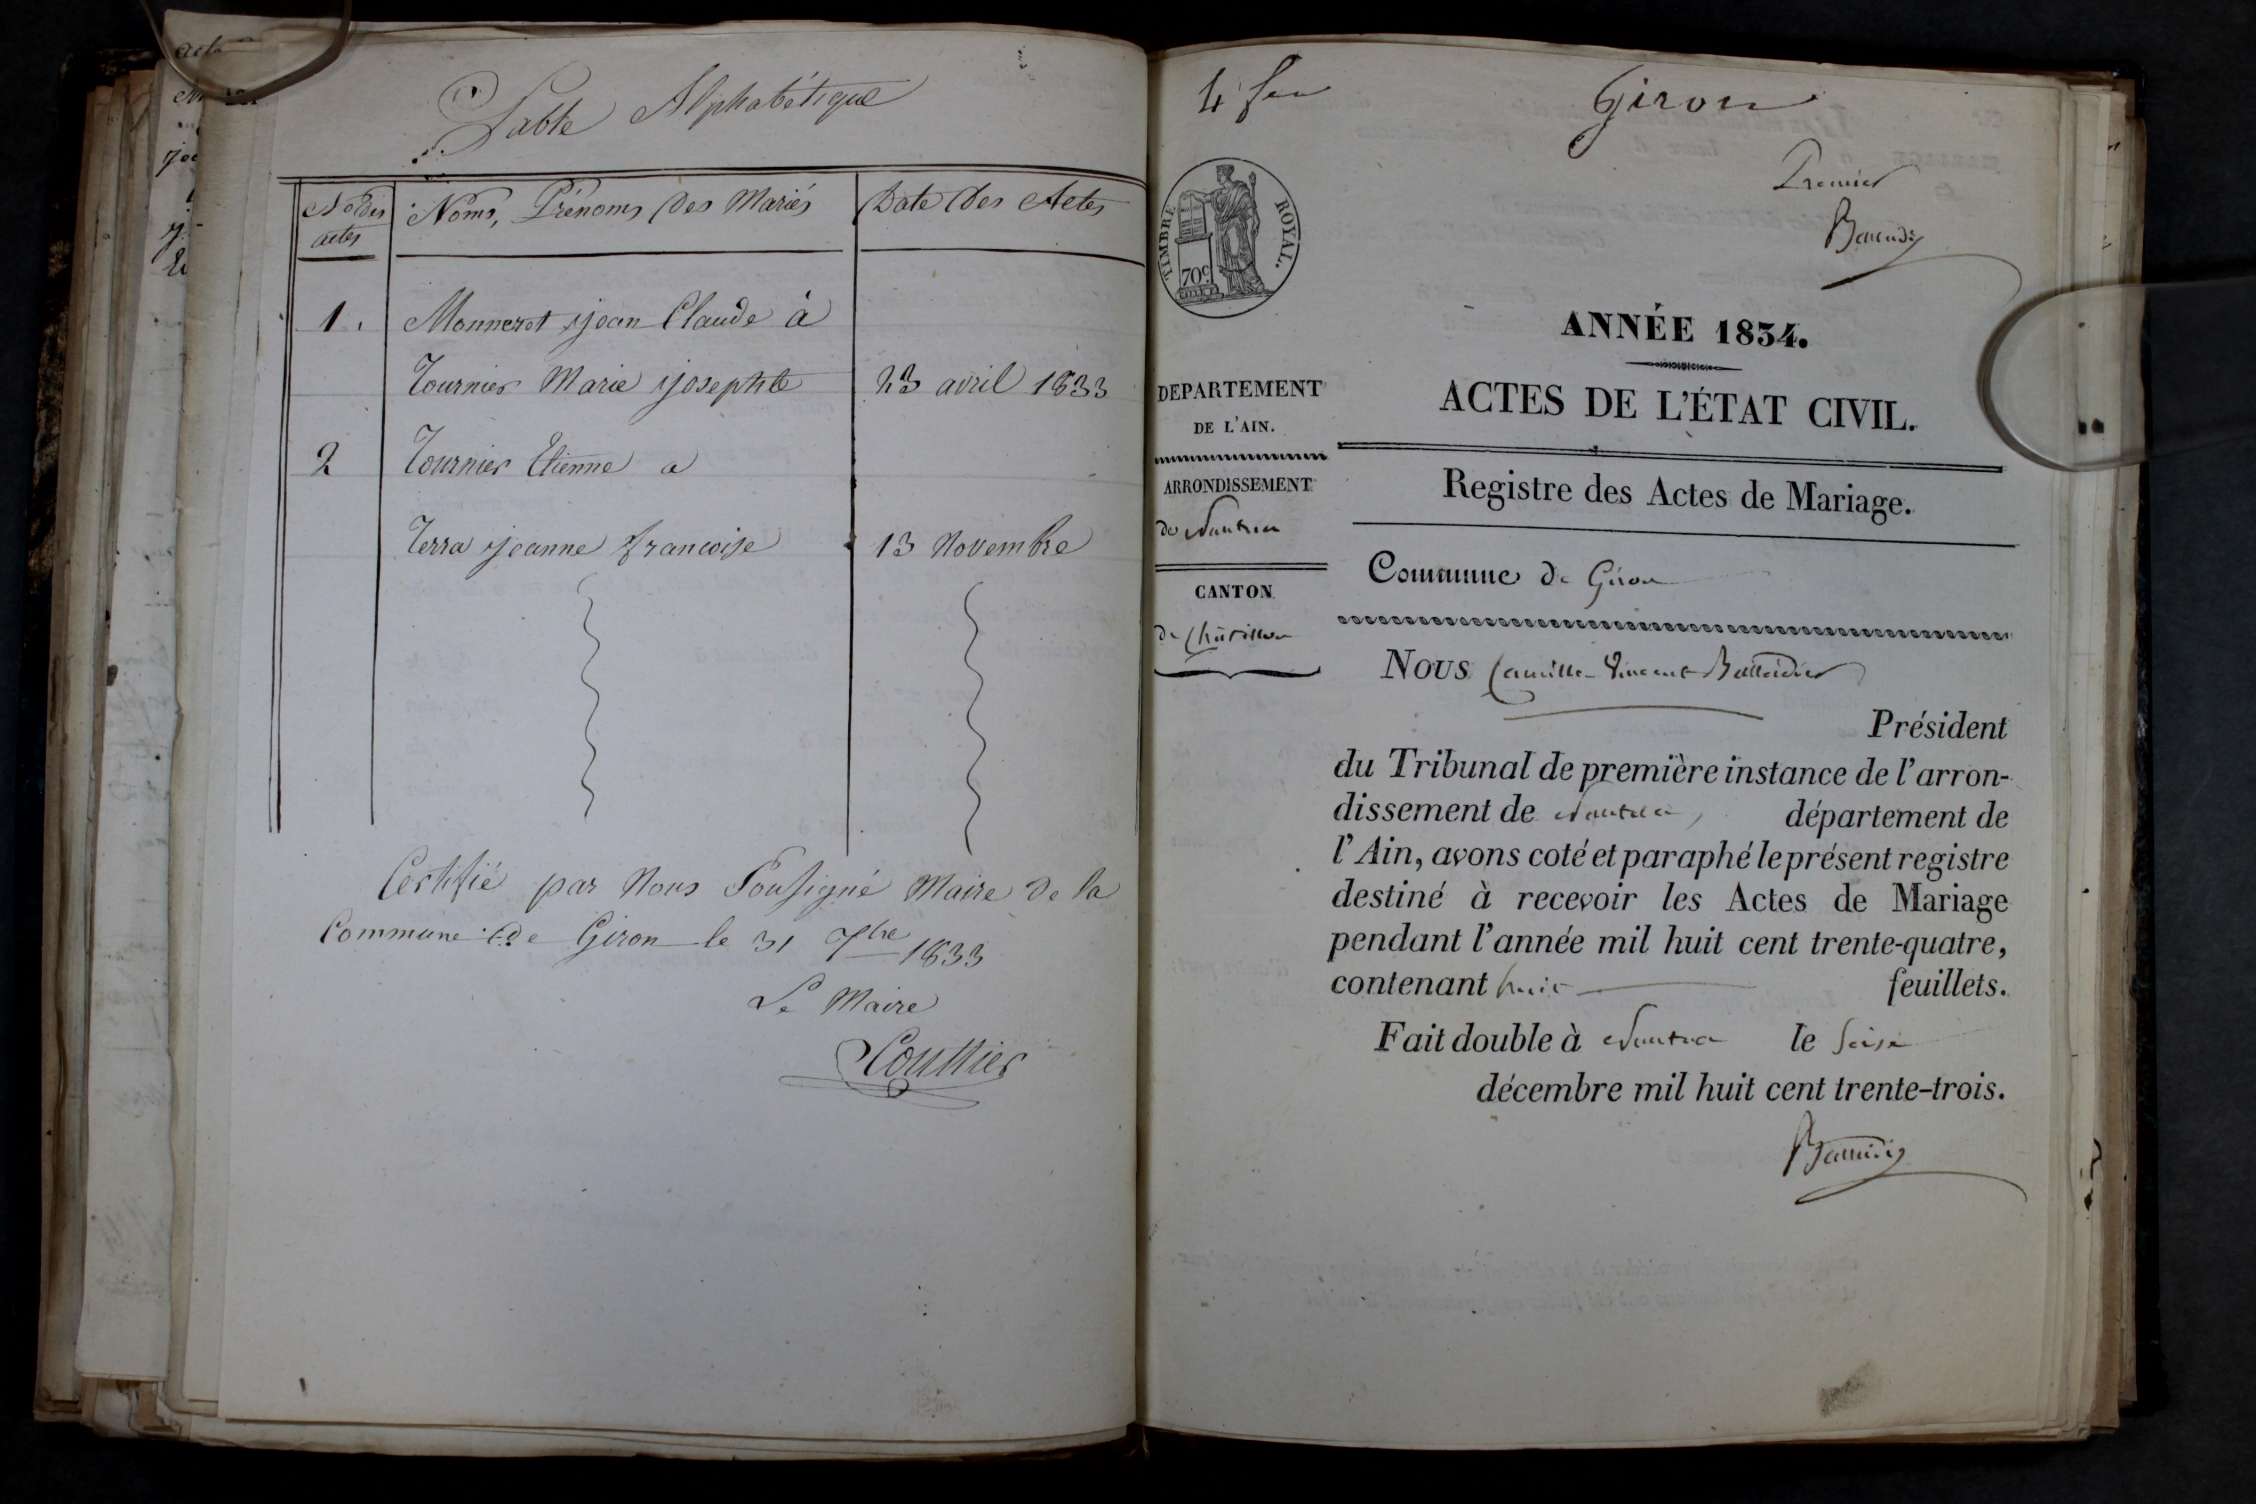 Table Alphabétique
Nos des actes
Noms, Prénoms des Mariés
Date des Actes
1. Monneret jean Claude à
Tournier Marie josephte 23 avril 1833
2 Tournier Etienne a
Terra jeanne francoise 13 Novembre
Certifié par Nous Sousigné Maire de la
Commune de Giron le 31 Xbre 1833
Le Maire
Couttier
4 feu
Giron
Premier
TIMBRE ROYAL.
70c
ANNÉE 1834.
ACTES DE L'ÉTAT CIVIL.
DEPARTEMENT
DE L'AIN.
ARRONDISSEMENT
de Nantua
CANTON
de Châtillon
Registre des Actes de Mariage.
Commune de Giron
NOUS Camille Vincent
Président
du Tribunal de première instance de l'arron-
dissement de Nantua, département de
l'Ain, avons coté et paraphé le présent registre
destiné à recevoir les Actes de Mariage
pendant l'année mil huit cent trente-quatre,
contenant huit feuillets.
Fait double à Nantua le Seize
décembre mil huit cent trente-trois.